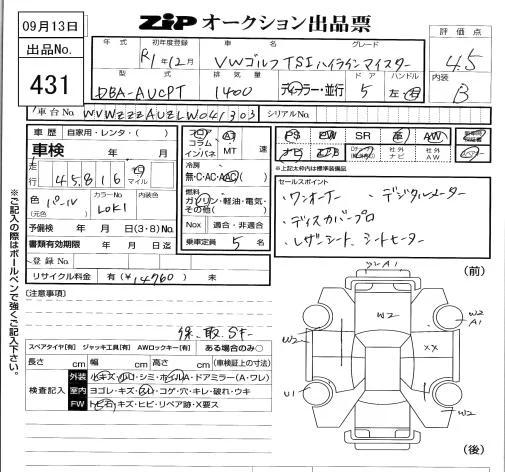 09月13日
ZIP オークション出品票
出品No.
431
年式 初年度登録 車名 グレード
R1年12月 VWゴルフ TSIハイラインマイスター
評価点
4.5
型式 排気量 ドア ハンドル
DBA-AUCPT 1400 ディーラー・並行 5 左・右
内装
B
車台No. WVWZZZAUZLW041303 シリアルNo.
車歴 自家用・レンタ( )
車検 年 月
走行 45,816 キロ マイル
色 (元色) カラーNo 内装色
LOK1
予備検 年 月 日(3・8)No.
書類有効期限 年 月 日迄
登録No
リサイクル料金 有(¥14760) 未
フロア コラム インパネ AT MT 速
冷房
無・C・AC・AAC
燃料
ガソリン・軽油・電気・その他( )
Nox 適合・非適合
乗車定員 5 名
PS PW SR 革 AW
ナビ 社外ナビ 社外AW
※上記太枠内は標準装備品
セールスポイント
・ワンオーナー ・デジタルメーター
・ディスカバープロ
・レザーシート、シートヒーター
※ご記入の際はボールペンで強くご記入下さい。
(注意事項)
保、取、SF-
スペアタイヤ[有] ジャッキ工具[有] AWロックキー[有] ある場合のみ○
長さ cm 幅 cm 高さ cm (車検証上の寸法)
検査記入
外装 小キズ・凹・シミ・ホイルA・ドアミラー(A・ワレ)
室内 ヨゴレ・キズ・スレ・コゲ・穴・キレ・破れ・ウキ
FW トビ石・キズ・ヒビ・リペア跡・X要ス
(前)
A1
W2
W2
A1
W2
XX
U1
W2
(後)